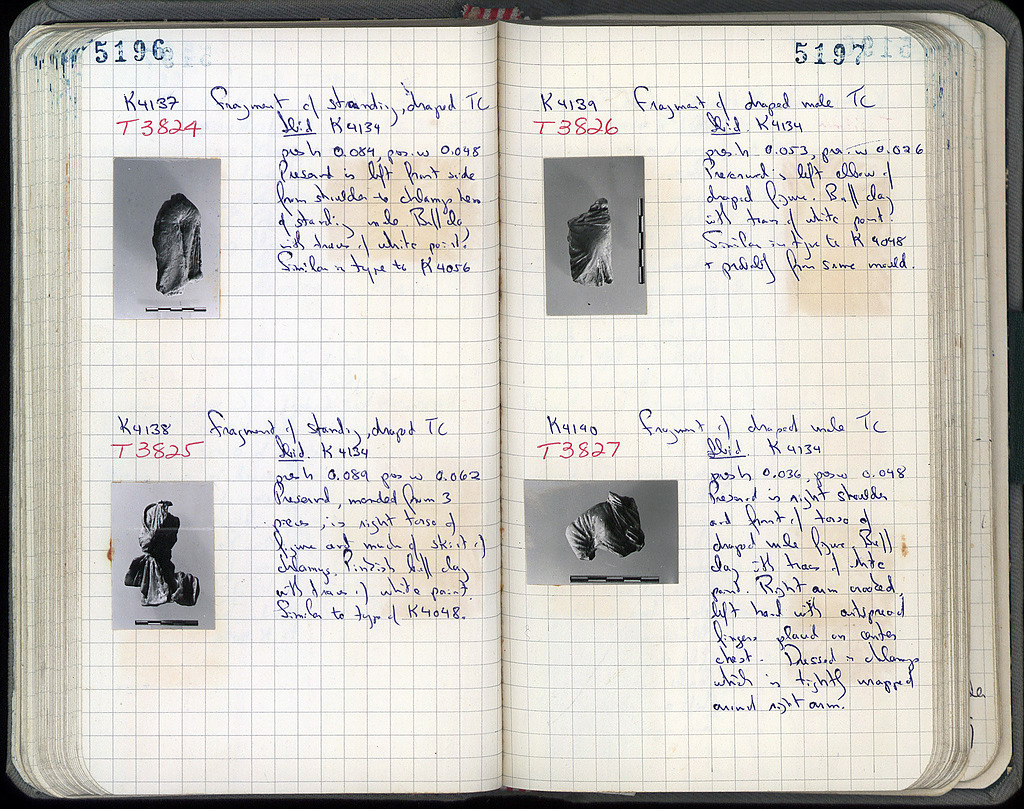 5196
K4137 Fragment of standing, draped TC
T3824 Ibid K4134
pres h 0.084, pres. w 0.048
Preserved is left front side
from shoulder to chlamys hem
of standing male. Buff clay
with traces of white paint.
Similar in type to K4056
K4138 Fragment of standing, draped TC
T3825 Ibid. K4134
pres h 0.089 pres w 0.062
Preserved, mended from 3
pieces, is right torso of
figure and much of skirt of
chlamys. Pinkish buff clay
with traces of white paint.
Similar to type of K4048.
5197
K4139 Fragment of draped male TC
T3826 Ibid. K4134
pres. h 0.053, pres. w 0.026
Preserved is left elbow of
draped figure. Buff clay
with traces of white paint.
Similar in type to K 4048
+ probably from same mould.
K4140 Fragment of draped male TC
T3827 Ibid. K 4134
pres h 0.036, pres w 0.048
Preserved is right shoulder
and front of torso of
draped male figure. Buff
clay with traces of white
paint. Right arm crooked,
left hand with outspread
fingers placed on center
chest. Dressed in chlamys
which is tightly wrapped
around right arm.